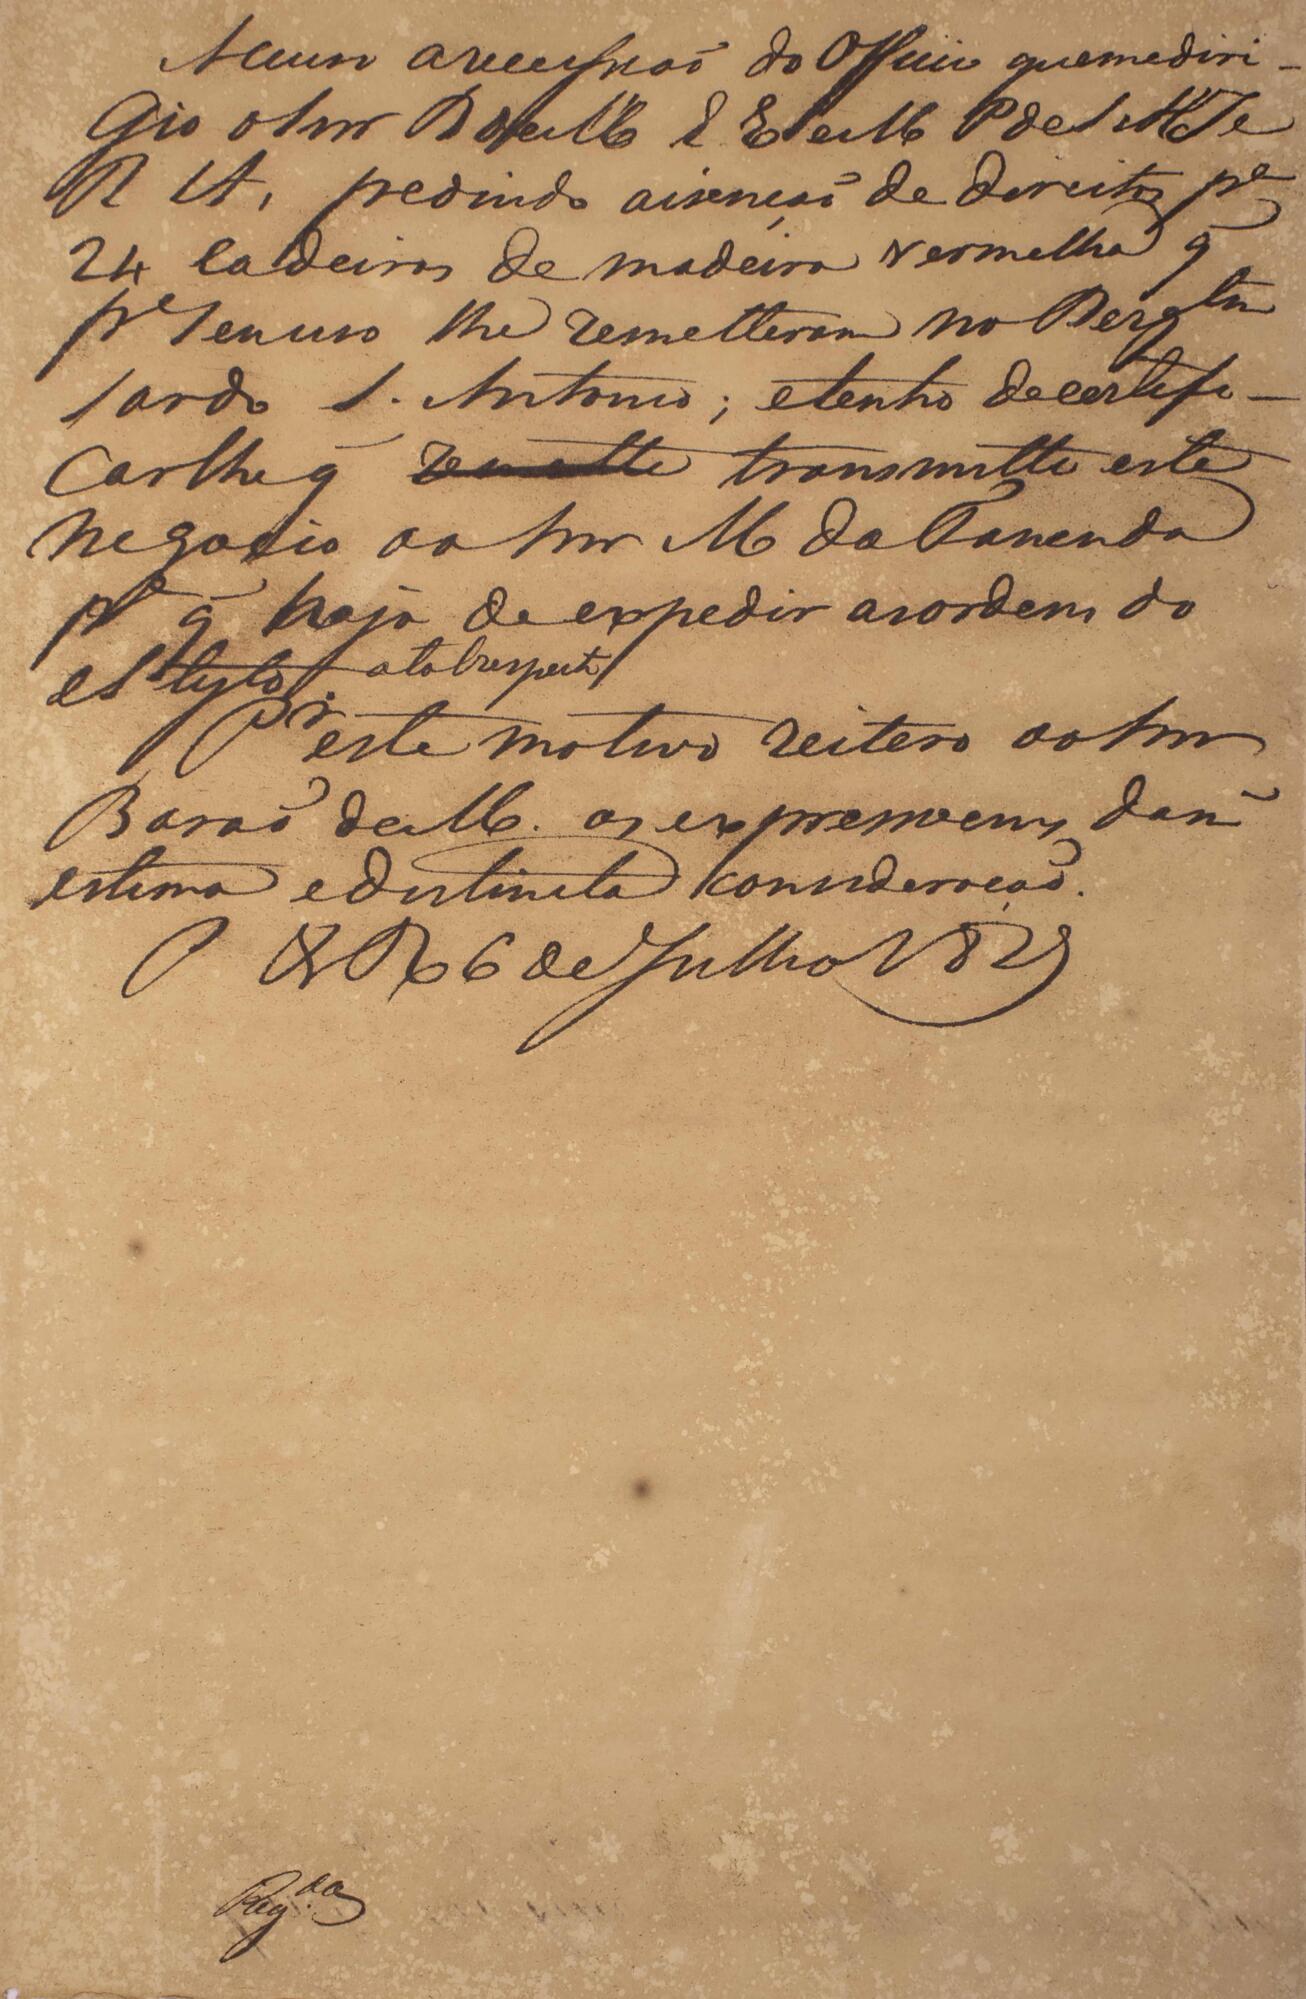 Accuso a recepção do Officio que me diri-
gio o Snr B de M E E e M P de S M I e
R A, pedindo a isenção de direitos pª
24 cadeiras de madeira vermelha q̃
pª seu uso lhe remetteram no Bergtm
Sardo S. Antonio; e tenho de certifi-
carlhe q̃ remette transmitto este
negocio ao Snr M da Fazenda
pª q̃ haja de expedir as ordens do
estylo a tal respeito
Pr este motivo reitero ao Snr
Barão de M. as expressoens da mª
estima e distincta consideração.
P 6 de Julho 1829
Reg.da